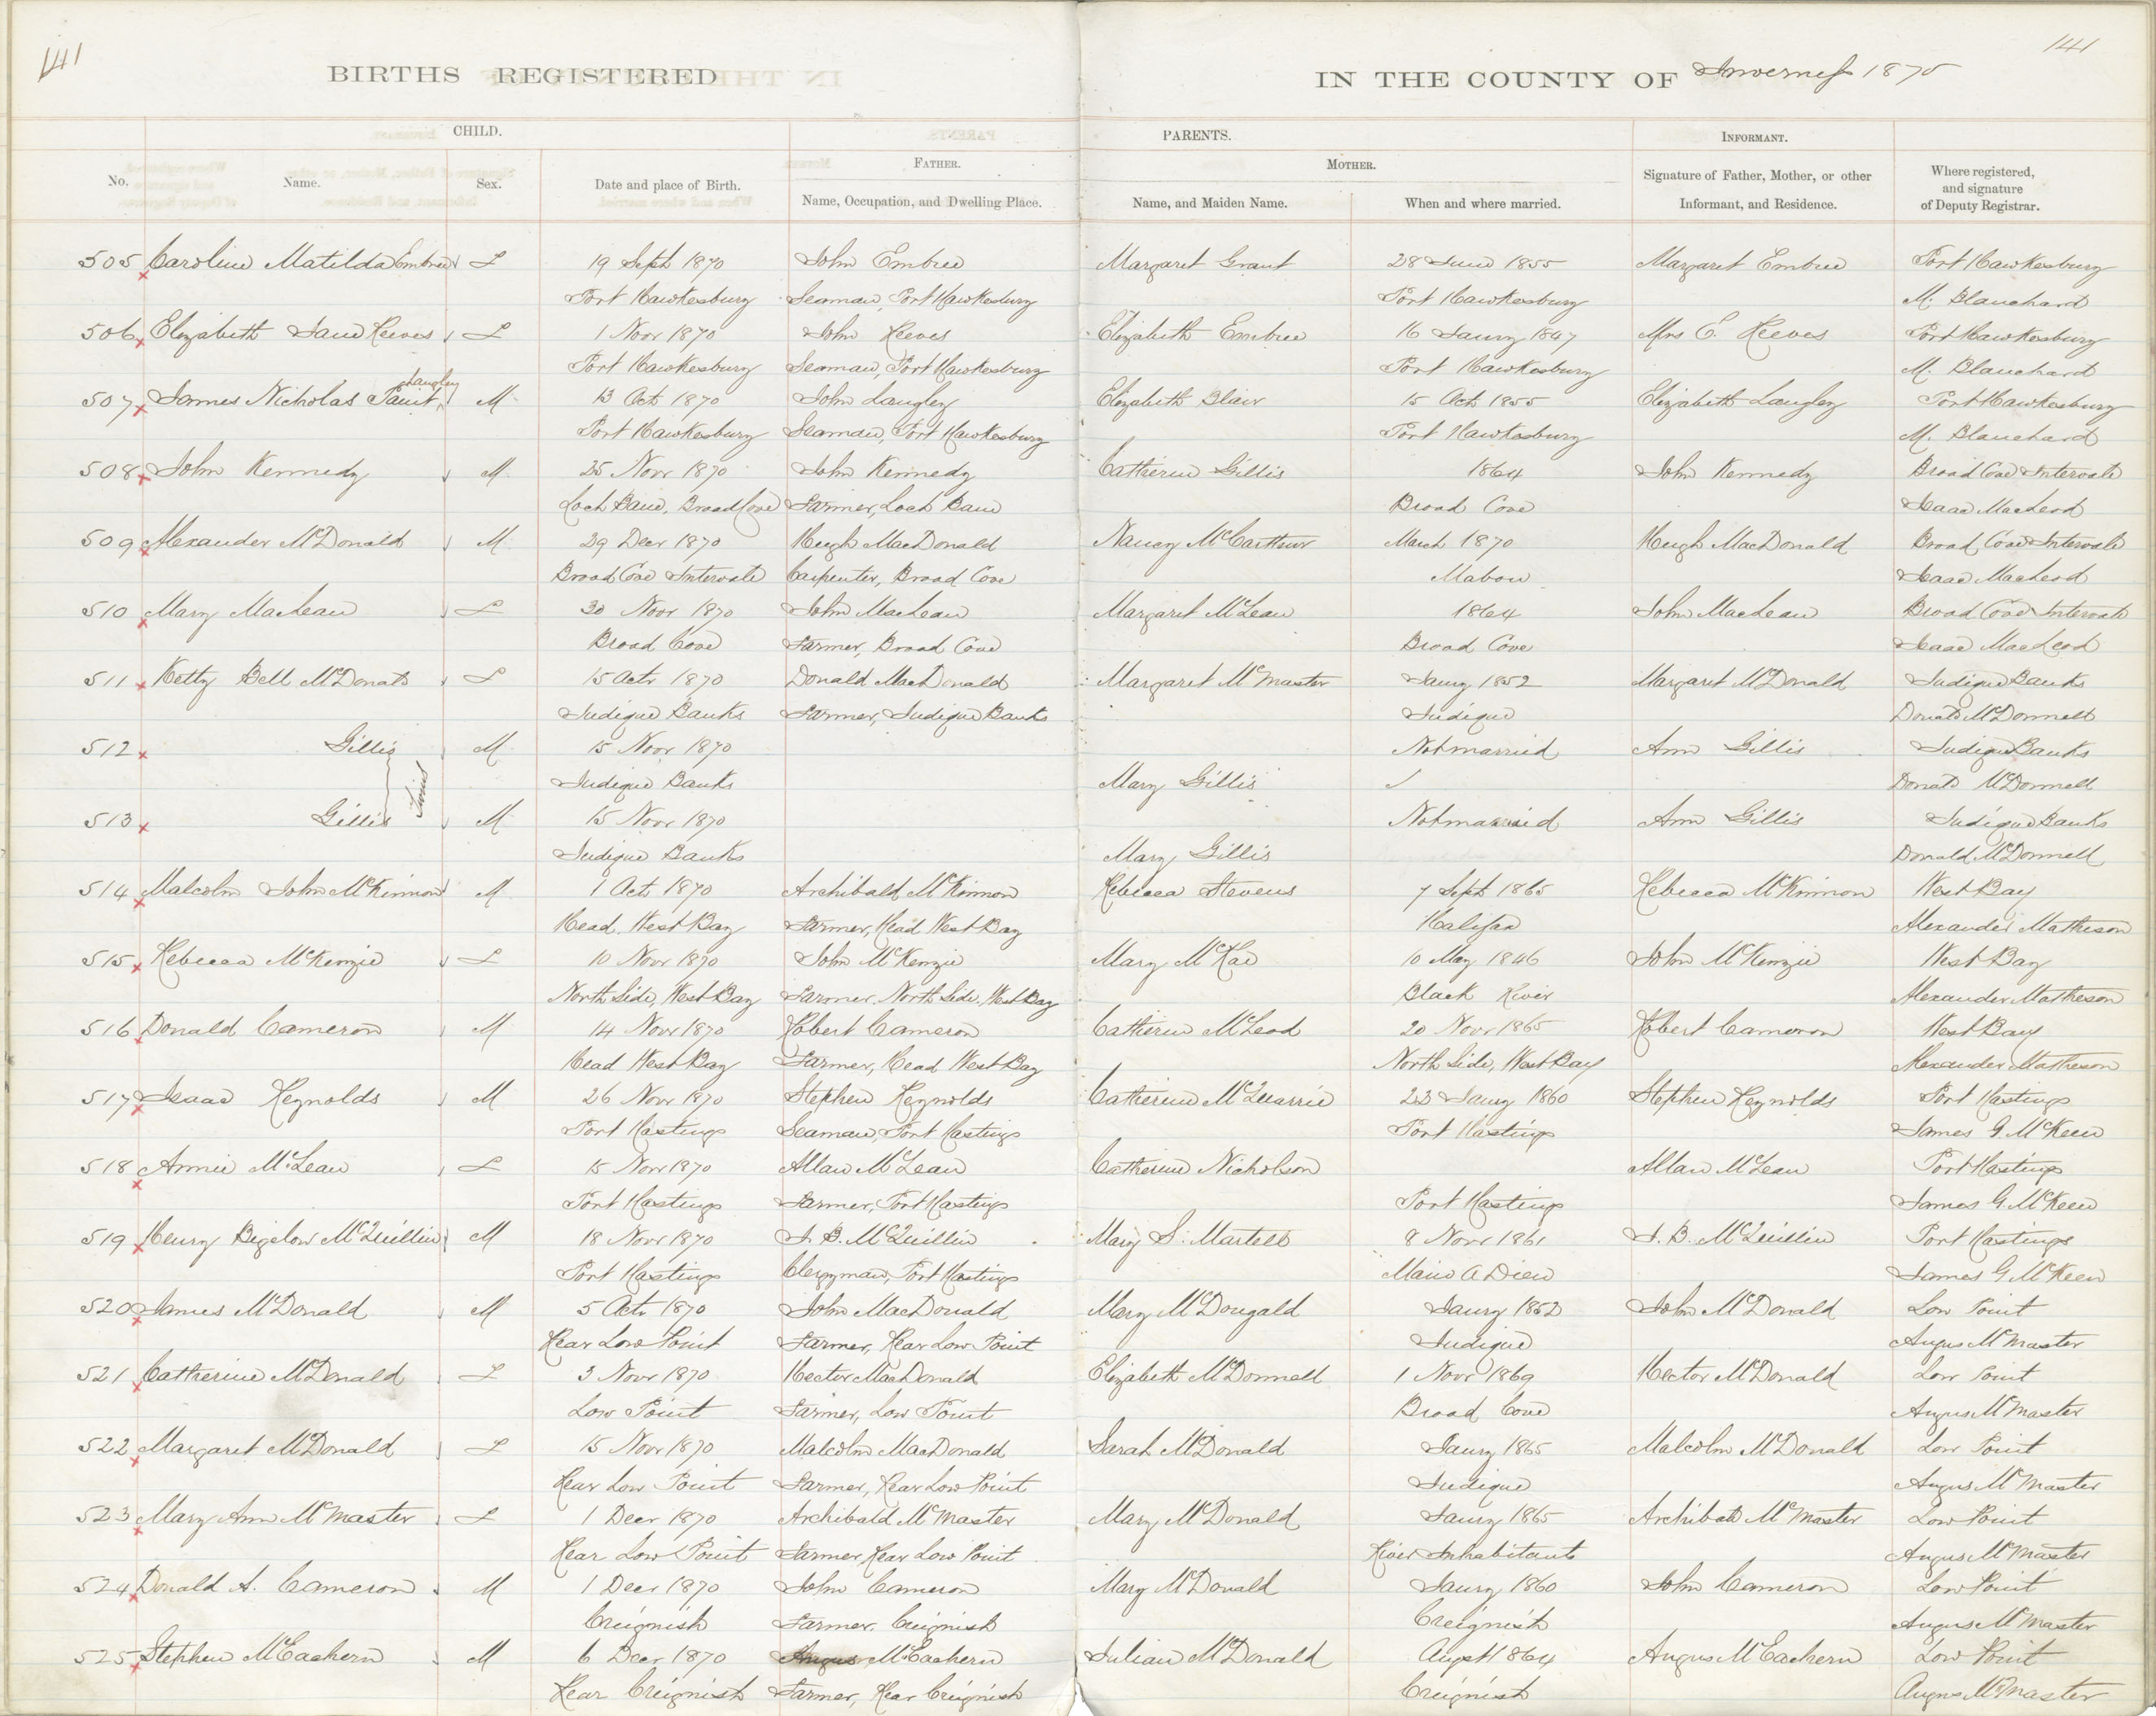 141
141
BIRTHS REGISTERED IN THE COUNTY OF Inverness 1870
CHILD. PARENTS. INFORMANT.
FATHER. MOTHER.
No. Name. Sex. Date and place of Birth. Name, Occupation, and Dwelling Place. Name, and Maiden Name. When and where married. Signature of Father, Mother, or other Informant, and Residence. Where registered, and signature of Deputy Registrar.
505 Caroline Matilda Embree F 19 Sept 1870 John Embree Margaret Grant 28 June 1855 Margaret Embree Port Hawkesbury
Port Hawkesbury Seaman, Port Hawkesbury Port Hawkesbury M. Blanchard
506 Elizabeth Jane Reeves F 1 Novr 1870 John Reeves Elizabeth Embree 16 Jany 1847 Mrs E. Reeves Port Hawkesbury
Port Hawkesbury Seaman, Port Hawkesbury Port Hawkesbury M. Blanchard
507 James Nicholas Paint Langley M 13 Oct 1870 John Langley Elizabeth Blair 15 Oct 1855 Elizabeth Langley Port Hawkesbury
Port Hawkesbury Seaman, Port Hawkesbury Port Hawkesbury M. Blanchard
508 John Kennedy M 25 Novr 1870 John Kennedy Catherine Gillis 1864 John Kennedy Broad Cove Intervale
Loch Bane, Broad Cove Farmer, Loch Bane Broad Cove Isaac MacLeod
509 Alexander McDonald M 29 Decr 1870 Hugh MacDonald Nancy McCarthur March 1870 Hugh MacDonald Broad Cove Intervale
Broad Cove Intervale Carpenter, Broad Cove Mabou Isaac MacLeod
510 Mary MacLean F 30 Novr 1870 John MacLean Margaret McLean 1864 John MacLean Broad Cove Intervale
Broad Cove Farmer, Broad Cove Broad Cove Isaac MacLeod
511 Ketty Bell McDonald F 15 Octr 1870 Donald MacDonald Margaret McMaster Jany 1852 Margaret McDonald Judique Banks
Judique Banks Farmer, Judique Banks Judique Donald McDonnell
512 Gillis M 15 Novr 1870 Not married Ann Gillis Judique Banks
Twins Judique Banks Mary Gillis Donald McDonnell
513 Gillis M 15 Novr 1870 Not married Ann Gillis Judique Banks
Judique Banks Mary Gillis Donald McDonnell
514 Malcolm John McKinnon M 1 Oct 1870 Archibald McKinnon Rebecca Stevens 7 Sept 1865 Rebecca McKinnon West Bay
Head West Bay Farmer, Head West Bay Halifax Alexander Matheson
515 Rebecca McKenzie F 10 Novr 1870 John McKenzie Mary McRae 10 May 1846 John McKenzie West Bay
North Side, West Bay Farmer, North Side, West Bay Black River Alexander Matheson
516 Donald Cameron M 14 Novr 1870 Robert Cameron Catherine McLeod 20 Novr 1865 Robert Cameron West Bay
Head West Bay Farmer, Head West Bay North Side, West Bay Alexander Matheson
517 Isaac Reynolds M 26 Novr 1870 Stephen Reynolds Catherine McQuarrie 23 Jany 1860 Stephen Reynolds Port Hastings
Port Hastings Seaman, Port Hastings Port Hastings James G. McKeen
518 Annie McLean F 15 Novr 1870 Allan McLean Catherine Nicholson Allan McLean Port Hastings
Port Hastings Farmer, Port Hastings Port Hastings James G. McKeen
519 Henry Bigelow McQuillin M 18 Novr 1870 J. B. McQuillin Mary S. Martell 8 Novr 1861 J. B. McQuillin Port Hastings
Port Hastings Clergyman, Port Hastings Main A Dieu James G McKeen
520 James McDonald M 5 Octr 1870 John MacDonald Mary McDougald Jany 1852 John McDonald Low Point
Rear Low Point Farmer, Rear Low Point Judique Angus McMaster
521 Catherine McDonald F 3 Novr 1870 Hector MacDonald Elizabeth McDonnell 1 Novr 1869 Hector McDonald Low Point
Low Point Farmer, Low Point Broad Cove Angus McMaster
522 Margaret McDonald F 15 Novr 1870 Malcolm MacDonald Sarah McDonald Jany 1865 Malcolm McDonald Low Point
Rear Low Point Farmer, Rear Low Point Judique Angus McMaster
523 Mary Ann McMaster F 1 Decr 1870 Archibald McMaster Mary McDonald Jany 1865 Archibald McMaster Low Point
Rear Low Point Farmer Rear Low Point River Inhabitants Angus McMaster
524 Donald A. Cameron M 1 Decr 1870 John Cameron Mary McDonald Jany 1860 John Cameron Low Point
Creignish Farmer, Creignish Creignish Angus McMaster
525 Stephen McEachern M 6 Decr 1870 Angus McEachern Julian McDonald Augst 1864 Angus McEachern Low Point
Rear Creignish Farmer, Rear Creignish Creignish Angus McMaster